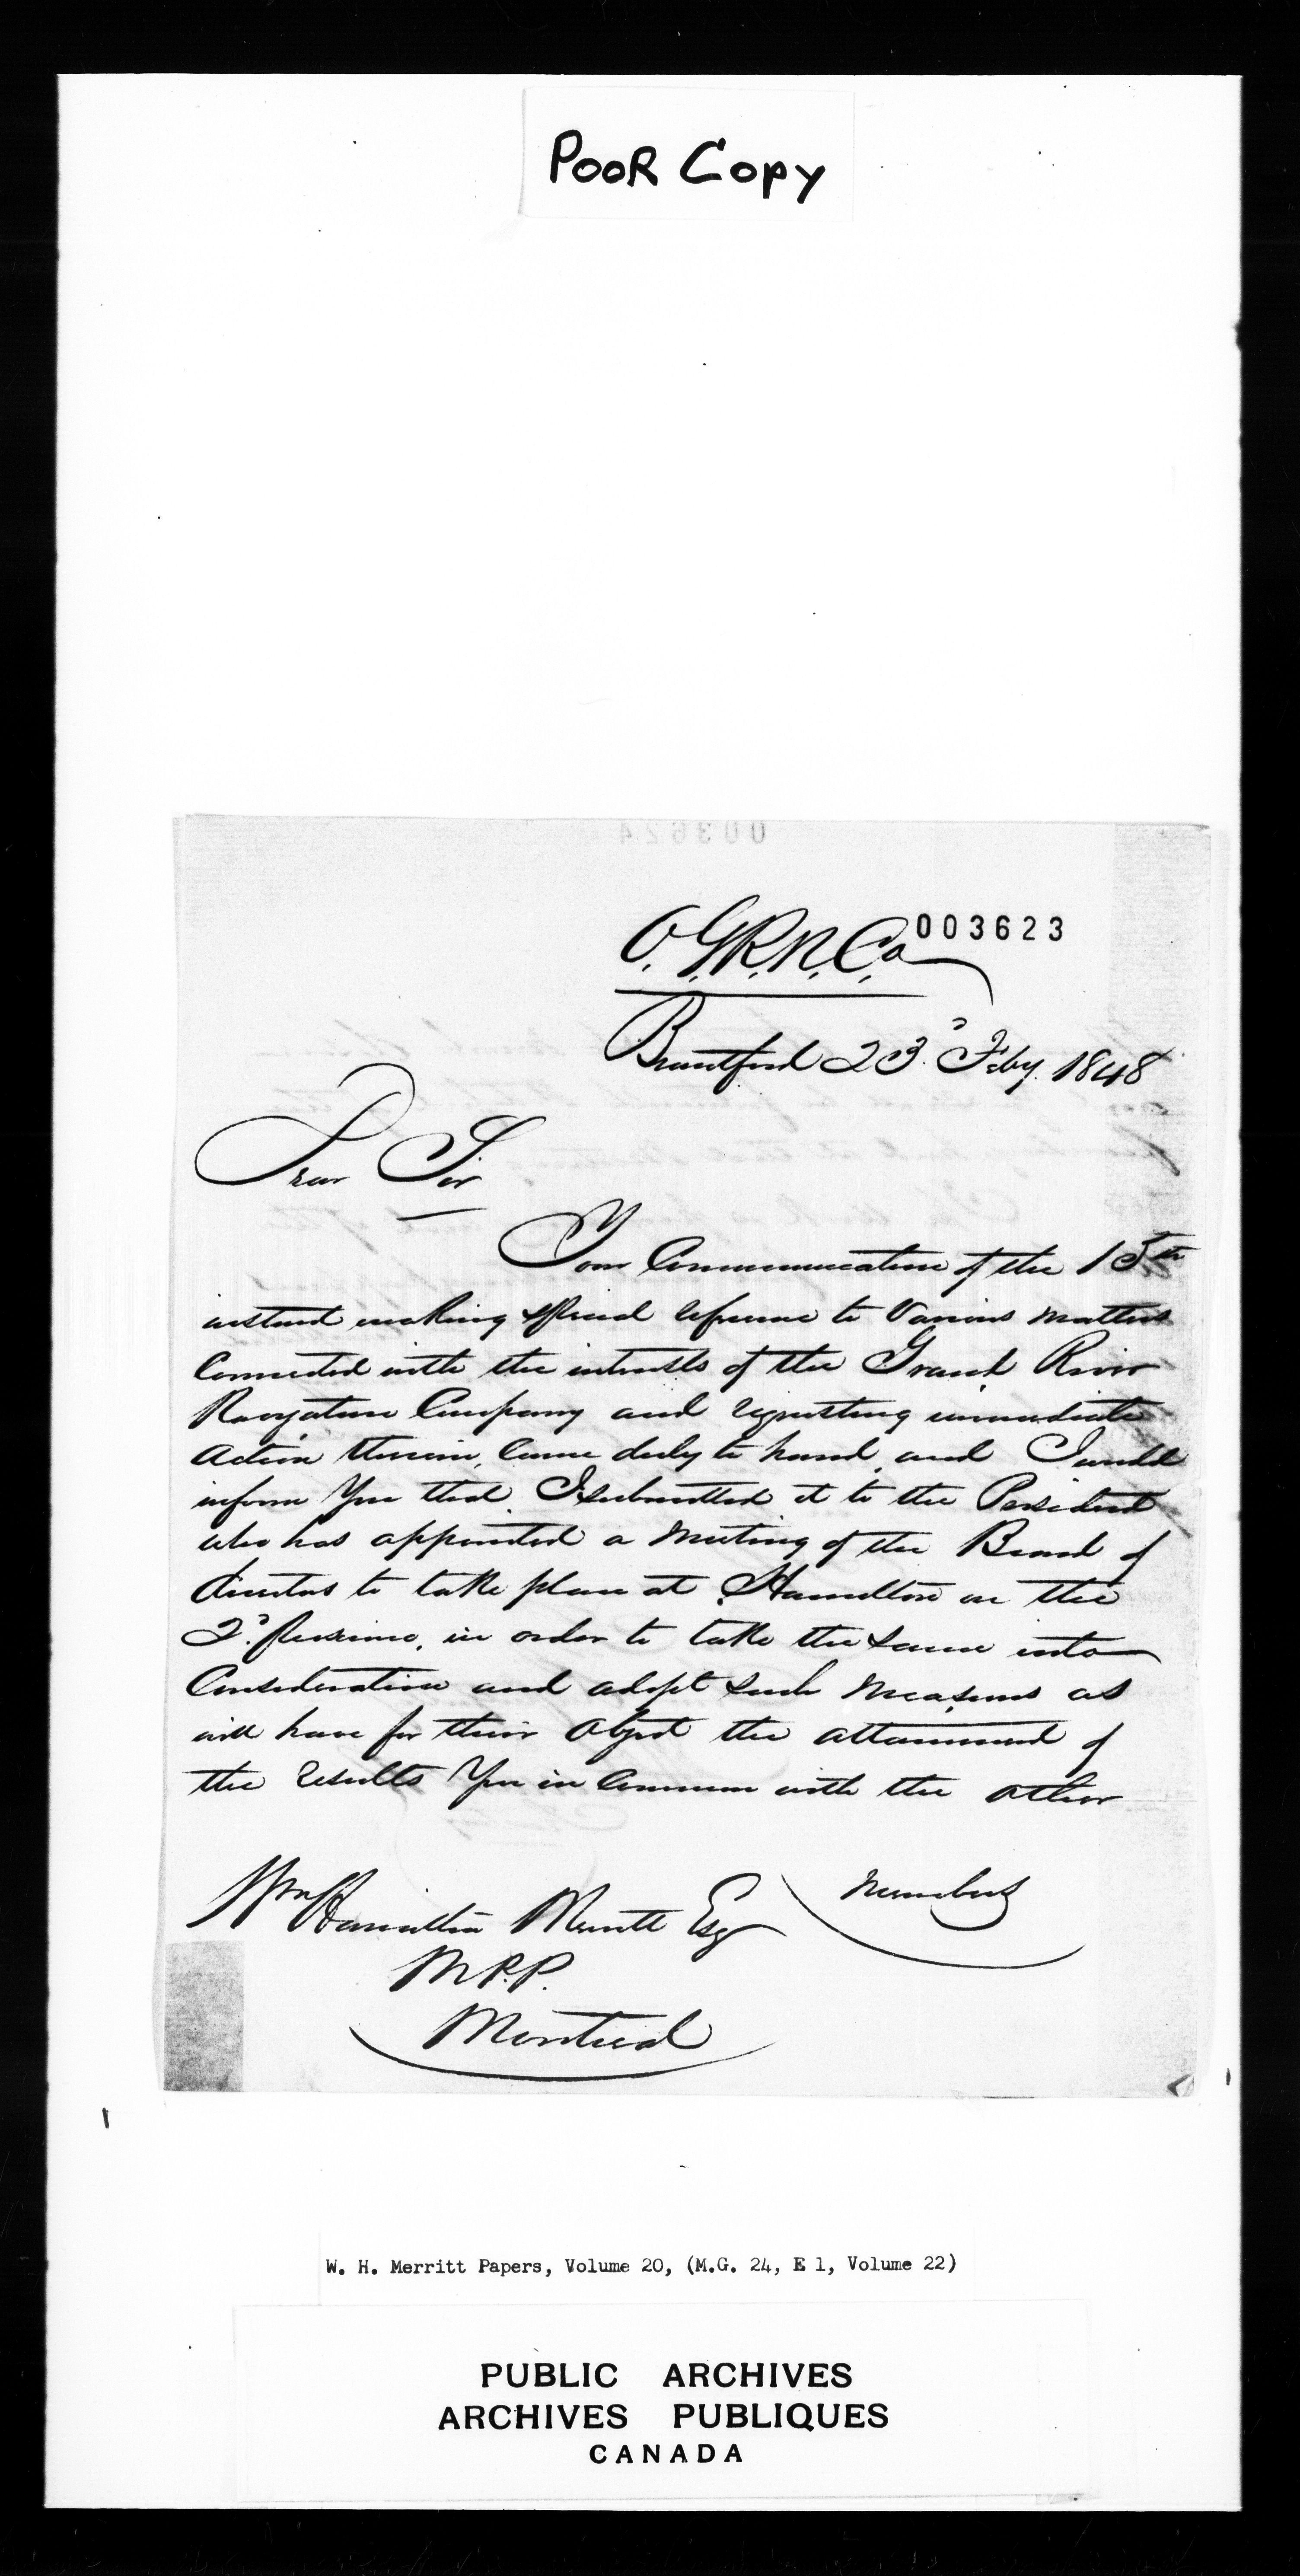 POOR COPY
003624
O.G.R.N.Co 003623
Brantford 23d Feby. 1848
Dear Sir
Your Communication of the 15th
instant making special reference to Various matters
Connected with the interests of the Grand River
Navigation Company and requesting immediate
Action therein, Came duly to hand, and I would
inform You that I submitted it to the President
who has appointed a Meeting of the Board of
directors to take place at Hamilton on the
2d proximo, in order to take the same into
Consideration and adopt such Measures as
will have for their Object the attainment of
the results You in Common with the other
Members
Wm Hamilton Merritt Esq
M.P.P.
Montreal
W. H. Merritt Papers, Volume 20, (M.G. 24, E 1, Volume 22)
PUBLIC ARCHIVES
ARCHIVES PUBLIQUES
CANADA